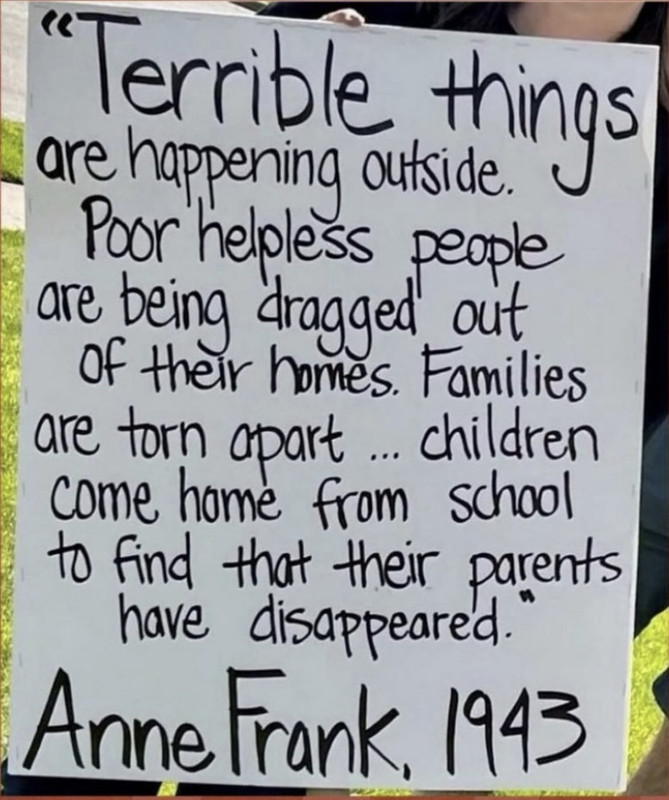 “Terrible things
are happening outside.
Poor helpless people
are being dragged out
of their homes. Families
are torn apart ... children
come home from school
to find that their parents
have disappeared."
Anne Frank, 1943